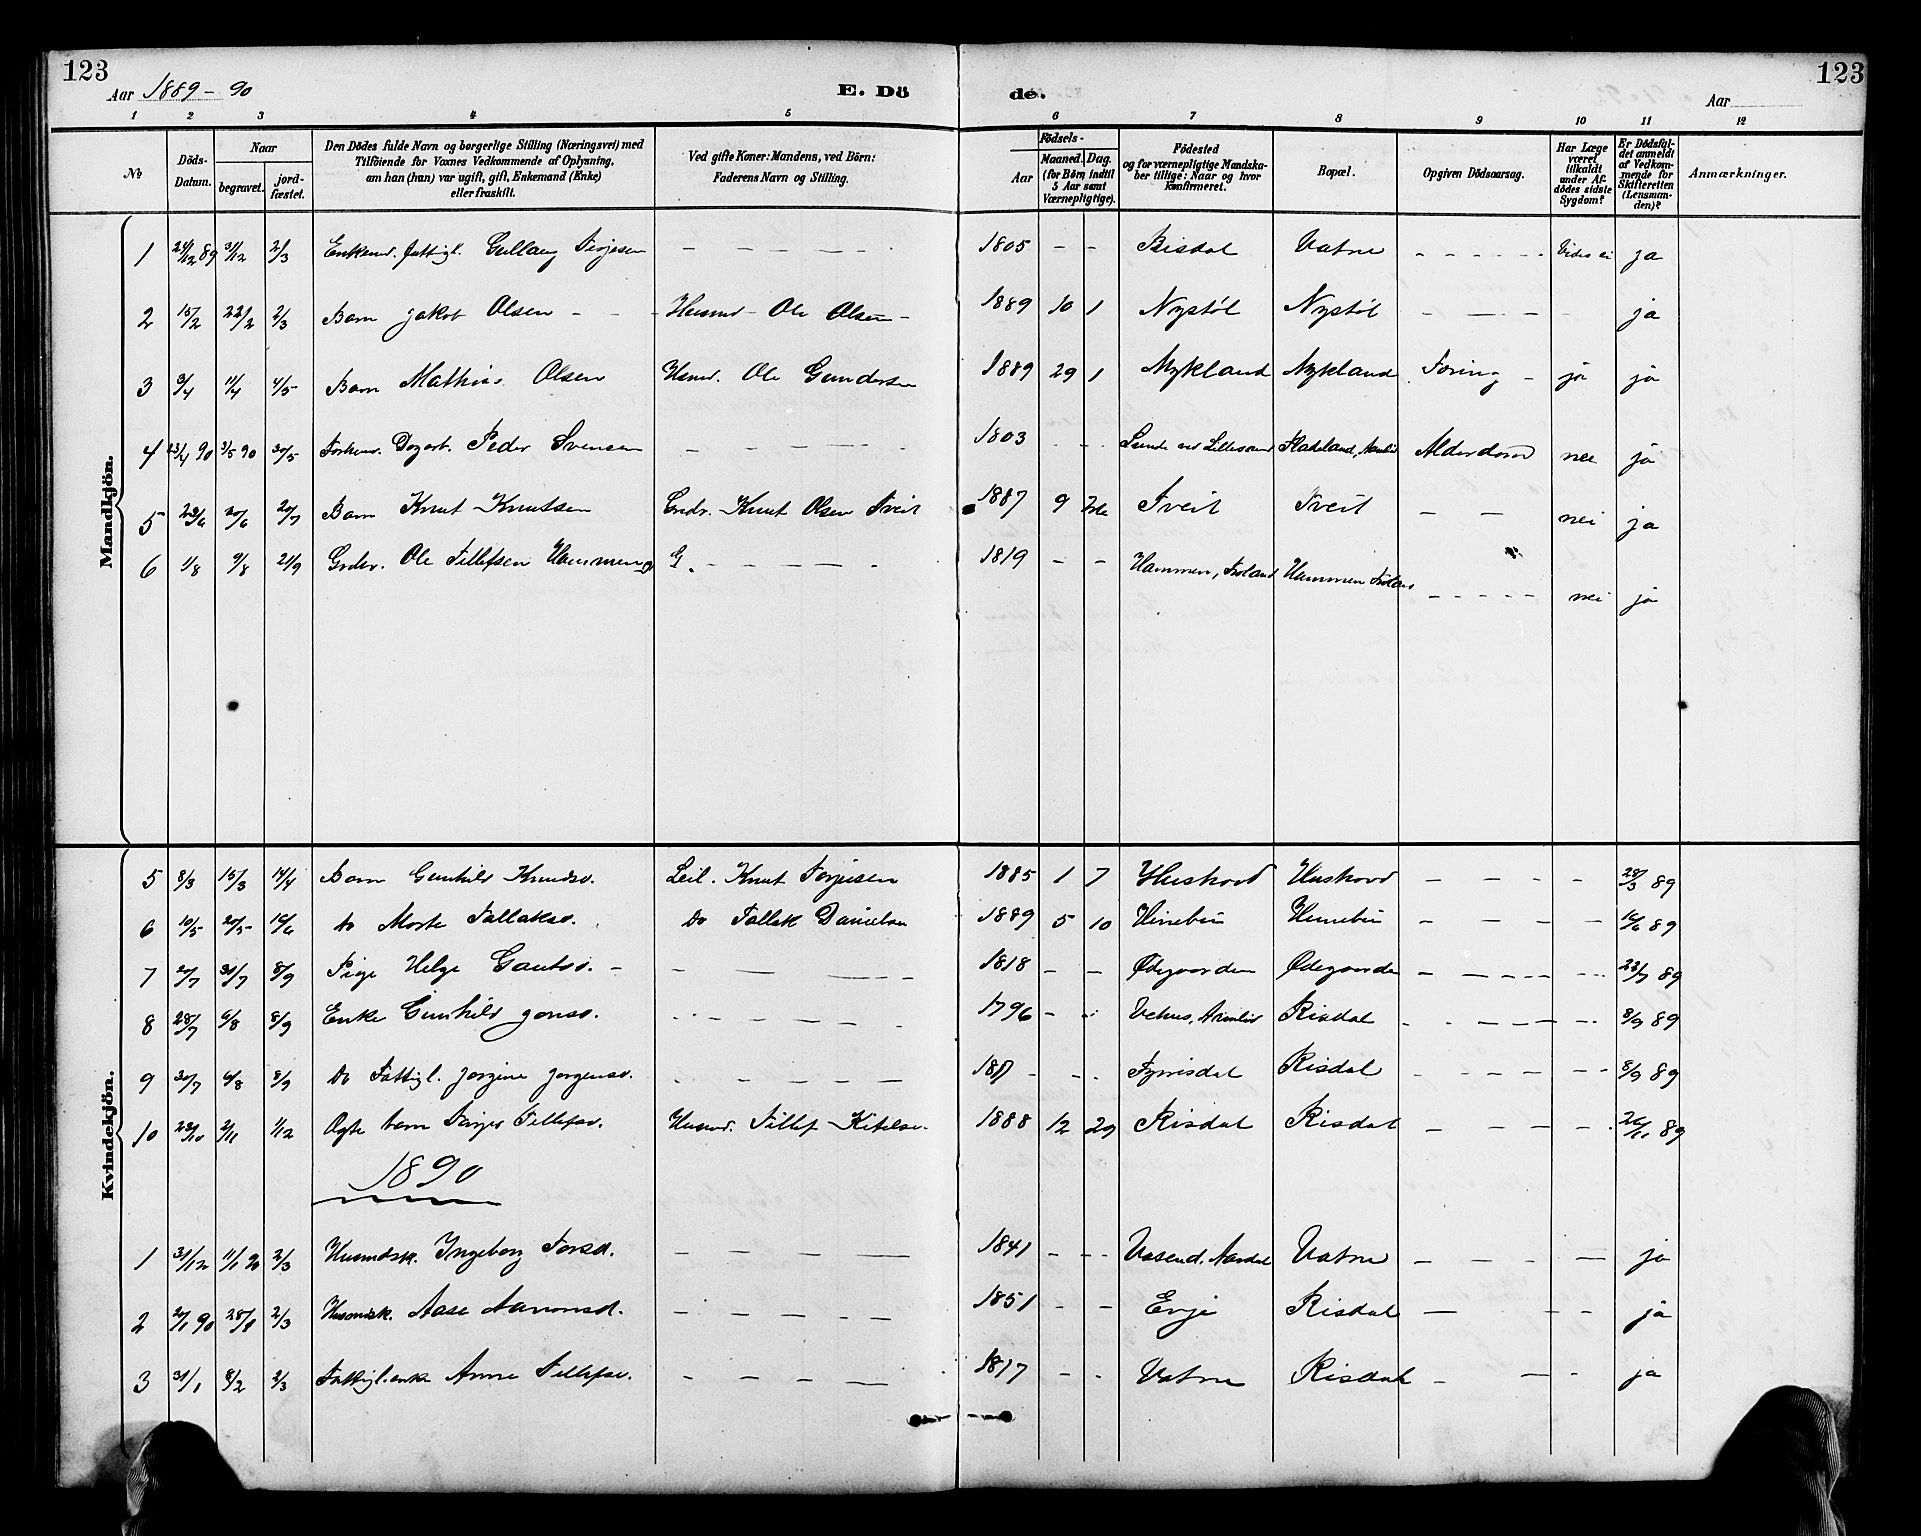 123
123
Aar 1889-90
E. Dö
de.
Aar
1 2 3 4 5 6 7 8 9 10 11 12
No
Döds-Datum.
Naar
begravet.
jord-fæstet.
Den Dödes fulde Navn og borgerlige Stilling (Næringsvei) med
Tilföiende for Voxnes Vedkommende af Oplysning,
om han (hun) var ugift, gift, Enkemand (Enke)
eller fraskilt.
Ved gifte Koner: Mandens, ved Börn:
Faderens Navn og Stilling.
Födsels-
Aar
Maaned. Dag.
(for Börn indtil
5 Aar samt
Værnepligtige).
Födested
og for værnepligtige Mandska-
ber tillige: Naar og hvor
konfirmeret.
Bopæl.
Opgiven Dödsaarsag.
Har Læge
været
tilkaldt
under Af-
dödes sidste
Sygdom?
Er Dödsfal-
det anmeldt
af Vedkom-
mende for
Skifteretten
(Lensman-
den)?
Anmærkninger.
Mandkjön.
1 24/12 89 31/12 2/3 Enkemd. fattigl. Gullaug Terjesen - - - - - 1805 - - Risdal Vatne - - - - - Vides ei ja
2 15/2 22/2 2/3 Barn Jakob Olsen - - - Husmd - Ole Olsen - 1889 10 1 Nystöl Nystöl - - - - ja
3 3/4 11/4 4/5 Barn Mathias Olsen Husmd. Ole Gundersen 1889 29 1 Mykland Mykland Tæring - ja ja
4 23/4 90 3/5 90 30/5 Peder Svensen - - - - - 1803 - - ved Lillesand Alderdom nei ja
5 20/6 20/7 Barn Knut Knutsen Grdr. Knut Olsen Tveit 1887 9 Tveit Tveit - - nei ja
6 1/8 9/8 21/9 Grdbr. Ole Tellefsen Hammen G. - - - - - 1819 - - Hammen, Froland Hammen Froland - - - - - nei ja
Kvindekjön.
5 8/3 15/3 14/4 Barn Gunhild Knudsd. Leil. Knut Terjesen 1885 1 7 Huskard Huskard - - - - 28/3 89
6 10/5 20/5 16/6 do Marte Tallaksd. Do Tallak Danielsen 1889 5 10 - - - - 16/6 89
7 20/7 31/7 8/9 Pige Helge Gautsd. - - - - - - 1818 - - Ødegaarden Ødegaarden - - - - - 23/7 89
8 28/7 6/8 8/9 Enke Gunhild Jonsd. - - - - - 1796 - - Vehus, Aamlid Risdal - - - - - 8/9 89
9 30/7 6/8 8/9 Do Fattigl. Jorgine Jorgensd. - - - - - - - Fyrisdal Risdal - - - - - 8/9 89
10 23/10 2/11 1/12 Ægte barn Terjes Tellefsd. Husmd. Tellef Kitelsen 1888 12 29 Risdal Risdal - - - - - 26/11 89
1890
1 31/12 11/1 90 2/3 Husmdsk. Ingeborg Torsd. - - - - 1841 - - Vasend. Aardal Vatne - - - - ja
2 20/1 90 28/1 2/3 Husmdsk. Aase Aanonsd. - - - - - 1851 - - Evje Risdal - - - ja
3 31/1 8/2 2/3 Fattigl. enke Anne Tellefsd. - - - - 1817 - - Vatne Risdal - - - ja